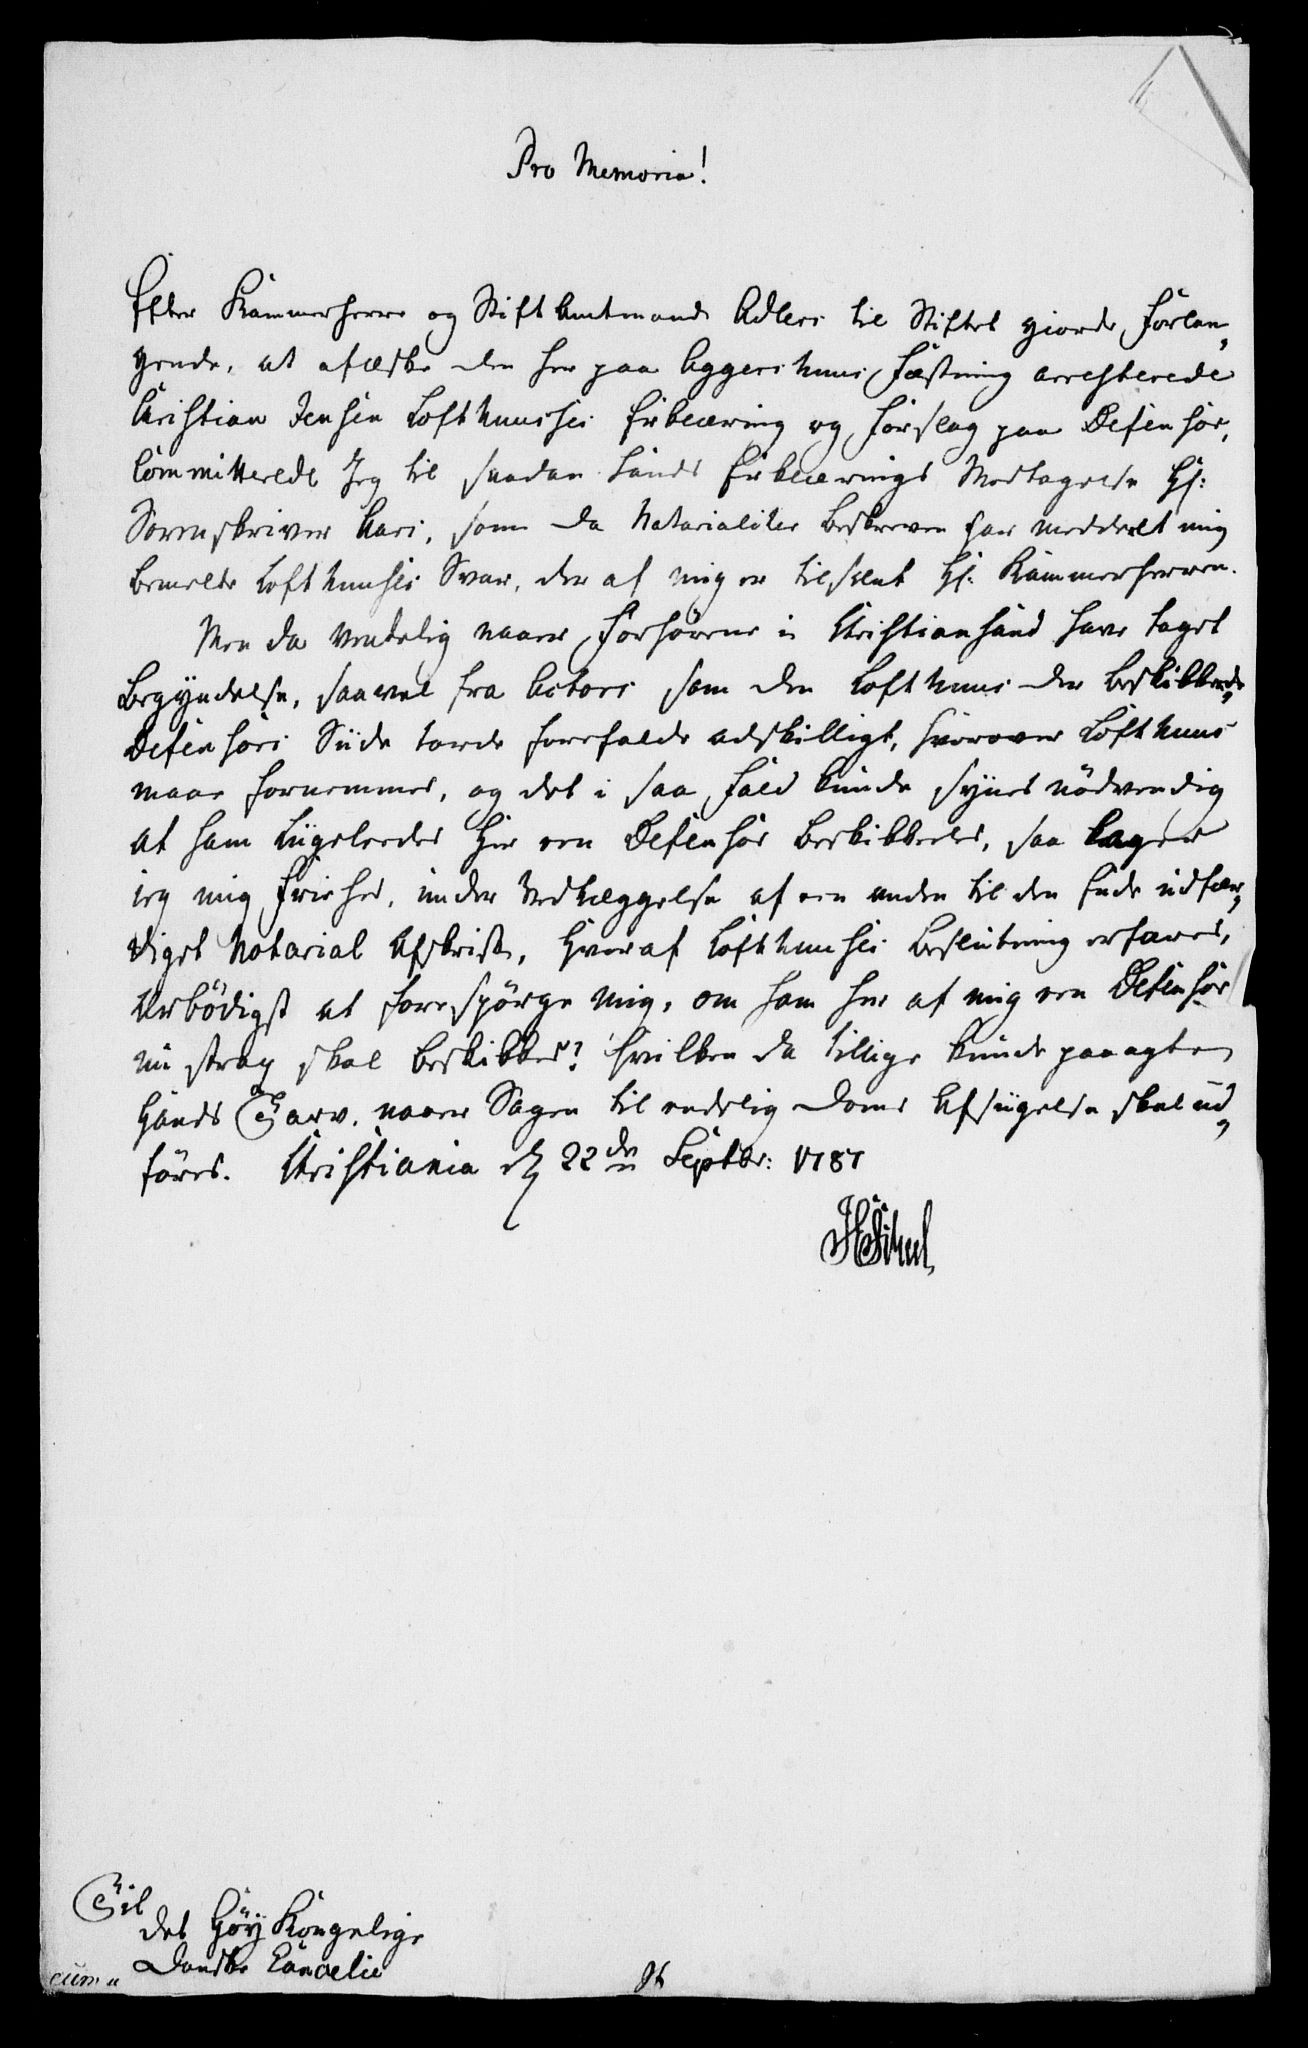 Pro Memoria!
Efter Kammerherre og Stiftamtmand Adlers til Stiftet giorde Forlan„
gende, at afæske den her paa Aggershuus Fæstning arresterede
Christian Jensen Lofthuusses Erklæring og Forslag paa Defensor,
Committerede Jeg til saadan hands Erklærings Modtagelse Hr:
Sorenskriver Aars, som da Notarialiter beskreven har meddeelt mig
bemelte Lofthuuses Svar, der af mig er tilsendt Hr: Kammerherren.
Men da vendelig naar Forhørene i Christiansand have taget
Begyndelse, saavel fra Actors som den Lofthuus der beskikkede
Defensors Siide torde forefalde adskilligt, hvorover Lofthuus
maae fornemmes, og det i saa Fald kunde synes nödvendig
at ham liigeledes her een Defensor beskikkedes, saa tager
ieg mig Friehed, under Vedlæggelse af een anden til den Ende udfær„
diget Notarial Afskrift, hvoraf Lofthuuses Beslutning erfares,
ærbödigst at forespörge mig, om ham her af mig een Defensor
nu strax skal beskikkes? hvilken da tillige kunde paaagte
hands Tarv, naar Sagen til endelig Doms Afsiigelse skal ud„
föres. Christiania d 22de Septbr: 1787
Til
det Höy Kongelige
Danske Cancelie